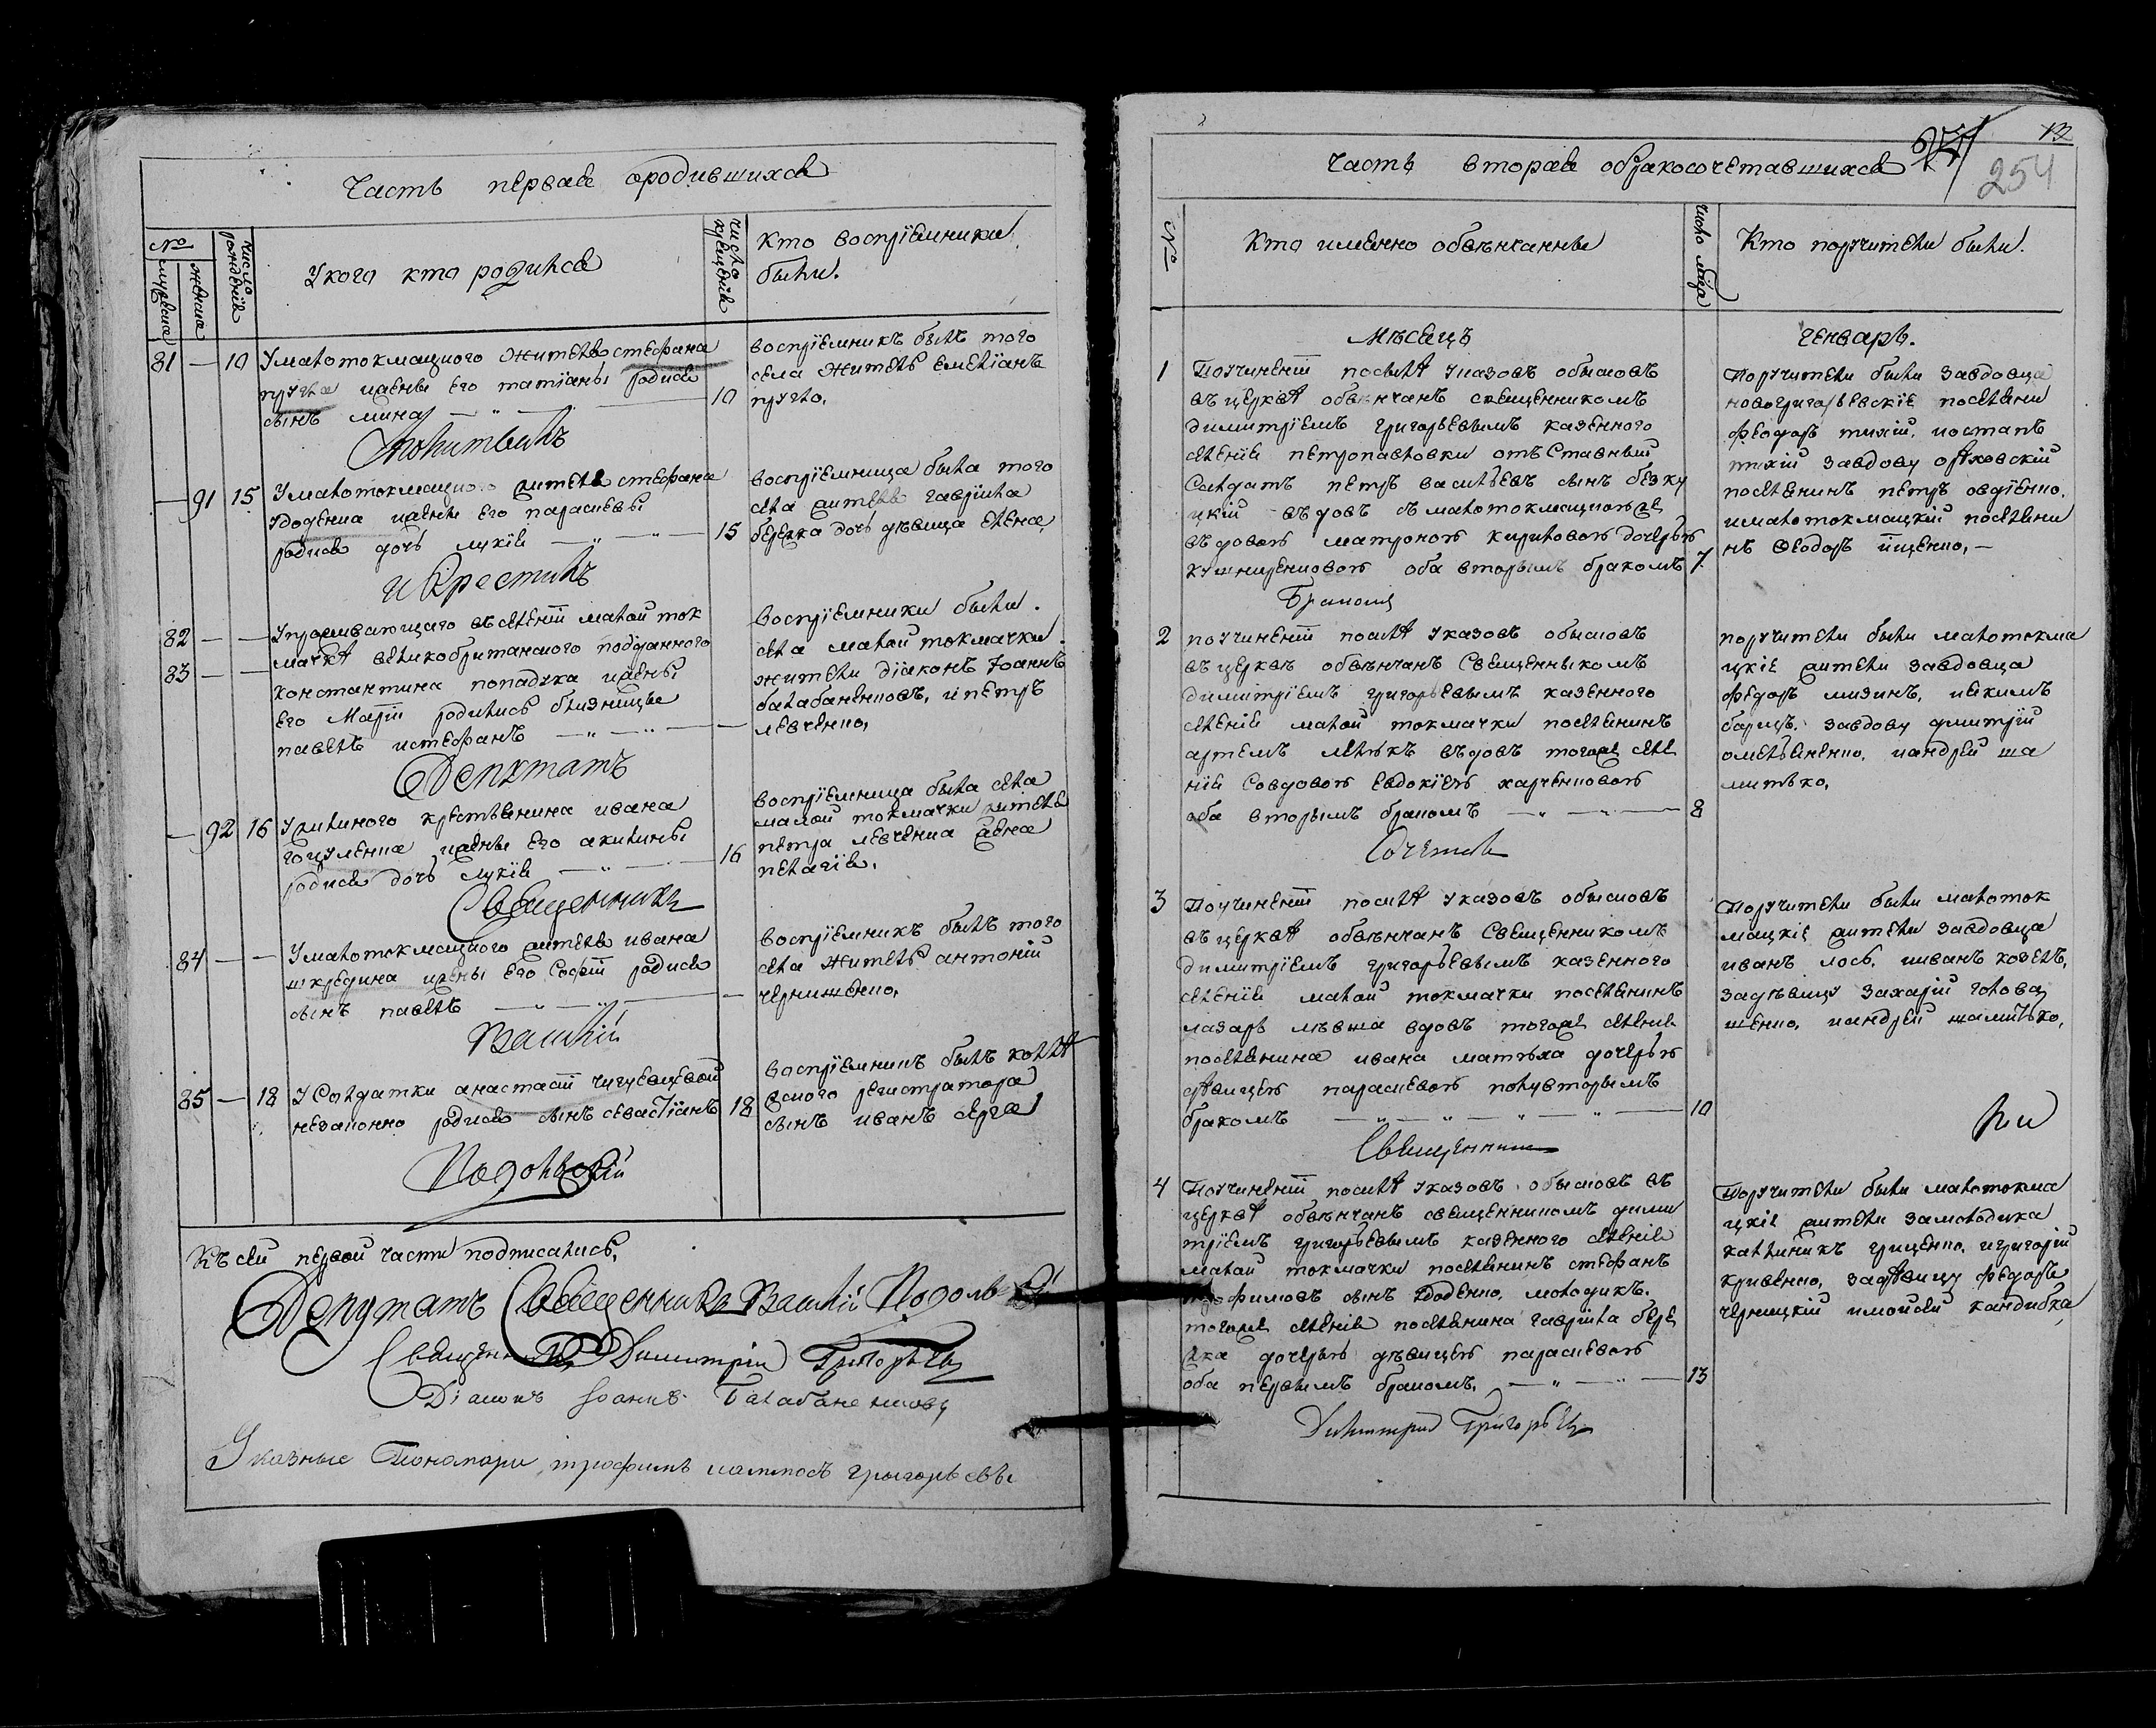 Часть первая ородившихся
№
мужеска
женска
число рожденїя
У кого кто родился
число крещенїя
Кто воспрїемники были.
81 — 10 У малотокмацкого жителя стефана
пугча ижены его татїаны родился
сынъ мина 10
воспрїемникъ былъ того
села житель емелїанъ
пугчо.
Молитвилъ
— 91 15 У малотокмацкого жителя стефана
удоденка ижены его параскевы
родися дочь лукїя 15
воспрїемница была того
села жителя гаврїила
бережка дочь дѣвица елена
и Крестилъ
82 — —
83 — —
У проживающаго въ селенїи малой ток
мачкѣ великобританского подданного
константина попадука ижены
его Марїи родились близницы
павелъ истефанъ —
воспрїемники были.
села малой токмачки
жители дїаконъ Іоаннъ
балабаненковъ, ипетръ
левченко,
Депутатъ
— 92 16 У
крестьянина ивана
гоцуленка ижены его акилины
родися дочь лукїя 16
воспрїемница была села
малой токмачки жителя
петра левченка жена
пелагїя.
Священникъ
84 — — У малотокмацкого жителя ивана
шкредина ижены его Софїи родися
сынъ павелъ —
воспрїемникъ былъ того
села житель антонїй
чернишенко,
Василїй
85 — 18 У Солдатки анастасїи
незаконно родися сынъ севастїанъ 18
воспрїемникъ былъ коллѣ
жского регистратора
сынъ иванъ серга
Подольскїй
Къ сей первой части подписались,
Депутатъ Священникъ Василїй Подольскїй
Священникъ Димитрїй Григорьевъ
Дїаконъ Іоаннъ Балабаненковъ
Указные Пономари трофимъ иаммосъ григорьевы
Часть вторая обракосочетавшихся
254
№
Кто именно обвѣнчанны
число мѣсца
Кто поручители были.
Мѣсецъ генварь.
1 Поучиненїи посилѣ указовъ обысковъ
въ церквѣ обвѣнчанъ священникомъ
димитрїемъ григорьевымъ казенного
селенїя петропавловки отъ Ставный
Солдатъ петръ васильевъ сынъ безку
цкїй вдовъ съ малотокмацкою же
вдовою матроною кириловою дочерью
кушниренковою оба вторымъ бракомъ 7.
Поручители были завдовца
новогригорьевскїе поселяни
федоръ тихїй, иостапъ
тихїй завдову орѣховскїй
поселенинъ петръ овдїенко,
ималотокмацкїй поселяни
нъ Феодоръ йщенко, —
Бракомъ
2 поучиненїи посилѣ указовъ обысковъ
въ церквѣ обвѣнчанъ Священникомъ
димитрїемъ григорьевымъ казенного
селенїя малой токмачки поселянинъ
артемъ вдовъ тогоже селе
нїя Совдовою евдокїею харченковою
оба вторымъ бракомъ 8
поручители были малотокма
цкїе жители завдовца
федоръ мизинъ, иякимъ
барцъ, завдову дмитрїй
омельяненко, иандрей ша
митько,
Сочеталъ
3 Поучиненїи посилѣ указовъ обысковъ
въ церквѣ обвѣнчанъ Священникомъ
димитрїемъ григорьевымъ казенного
селенїя малой токмачки поселянинъ
лазарь лѣвша вдовъ тогоже селенїя
поселянина ивана матѣха дочерью
дѣвицею параскевою полувторымъ
бракомъ 10
Поручители были малоток
мацкїе жители завдовца
иванъ лось, ииванъ козелъ,
задѣвицу захарїй голова
щенко, иандрей шамитько,
Священникъ
4 Поучиненїи посилѣ указовъ обысковъ въ
церквѣ обвѣнчанъ священникомъ дими
трїемъ григорьевымъ казенного селенїя
малой токмачки поселянинъ стефанъ
трофимовъ сынъ удоденко, молодикъ.
тогоже селенїя поселянина гаврїила бере
жка дочерью дѣвицею параскевою
оба первымъ бракомъ, 13
Поручители были малотокма
цкїе жители замолодика
каллиникъ грищенко, игригорїй
кривенко, задѣвицу федоръ
черницкїй имойсей кандибка,
Димитрїй Григорьевъ